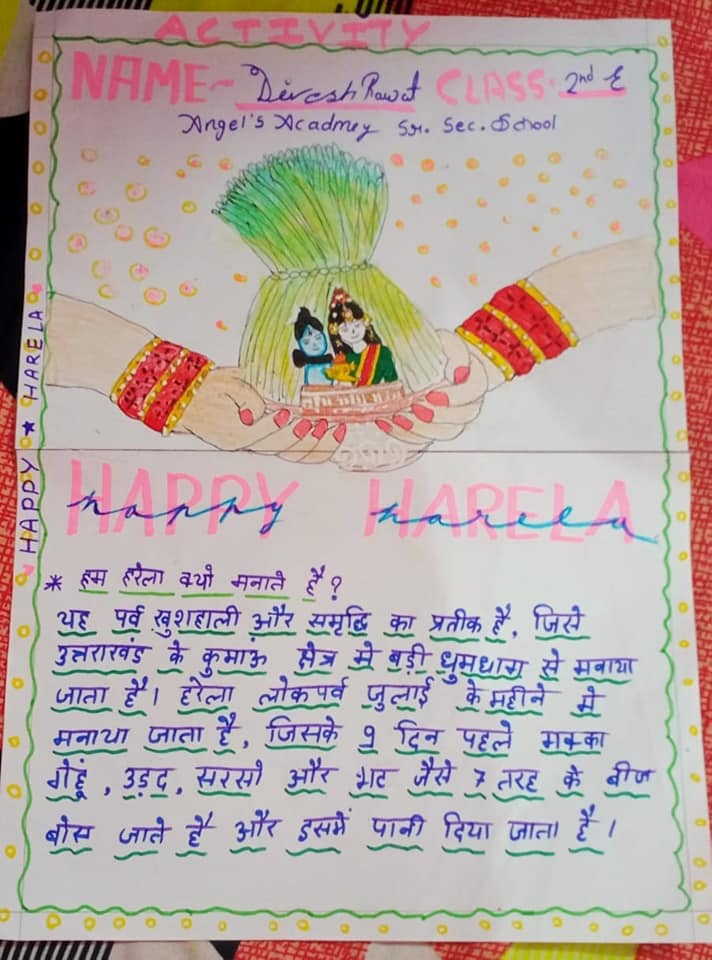 ACTIVITY
NAME- Divesh Rawat CLASS. 2nd E
Angel's Acadmey Sr. Sec. School
HAPPY ★ HARELA
HAPPY HARELA
happy harela
* हम हरेला क्यो मनाते है ?
यह पर्व खुशहाली और समृद्धि का प्रतीक है, जिसे
उत्तराखंड के कुमाऊ क्षेत्र मे बड़ी धुमधाम से मनाया
जाता है। हरेला लोकपर्व जुलाई के महीने मे
मनाया जाता है, जिसके 9 दिन पहले मक्का
गेहूं, उड़द, सरसो और भट जैसे 7 तरह के बीज
बोस जाते है और इसमें पानी दिया जाता है ।